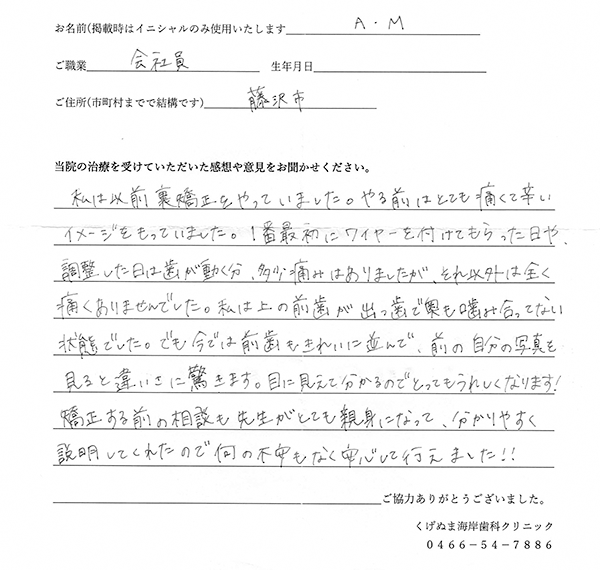 お名前(掲載時はイニシャルのみ使用いたします A・M
ご職業 会社員 生年月日
ご住所(市町村までで結構です) 藤沢市
当院の治療を受けていただいた感想や意見をお聞かせください。
私は以前裏矯正をやっていました。やる前はとても痛くて辛い
イメージをもっていました。1番最初にワイヤーを付けてもらった日や、
調整した日は歯が動く分、多少痛みはありましたが、それ以外は全く
痛くありませんでした。私は上の前歯が出っ歯で奥も噛み合ってない
状態でした。でも今では前歯もきれいに並んで、前の自分の写真を
見ると違いさに驚きます。目に見えて分かるのでとってもうれしくなります!
矯正する前の相談も先生がとても親身になって、分かりやすく
説明してくれたので何の不安もなく安心して行えました!!
ご協力ありがとうございました。
くげぬま海岸歯科クリニック
0466-54-7886